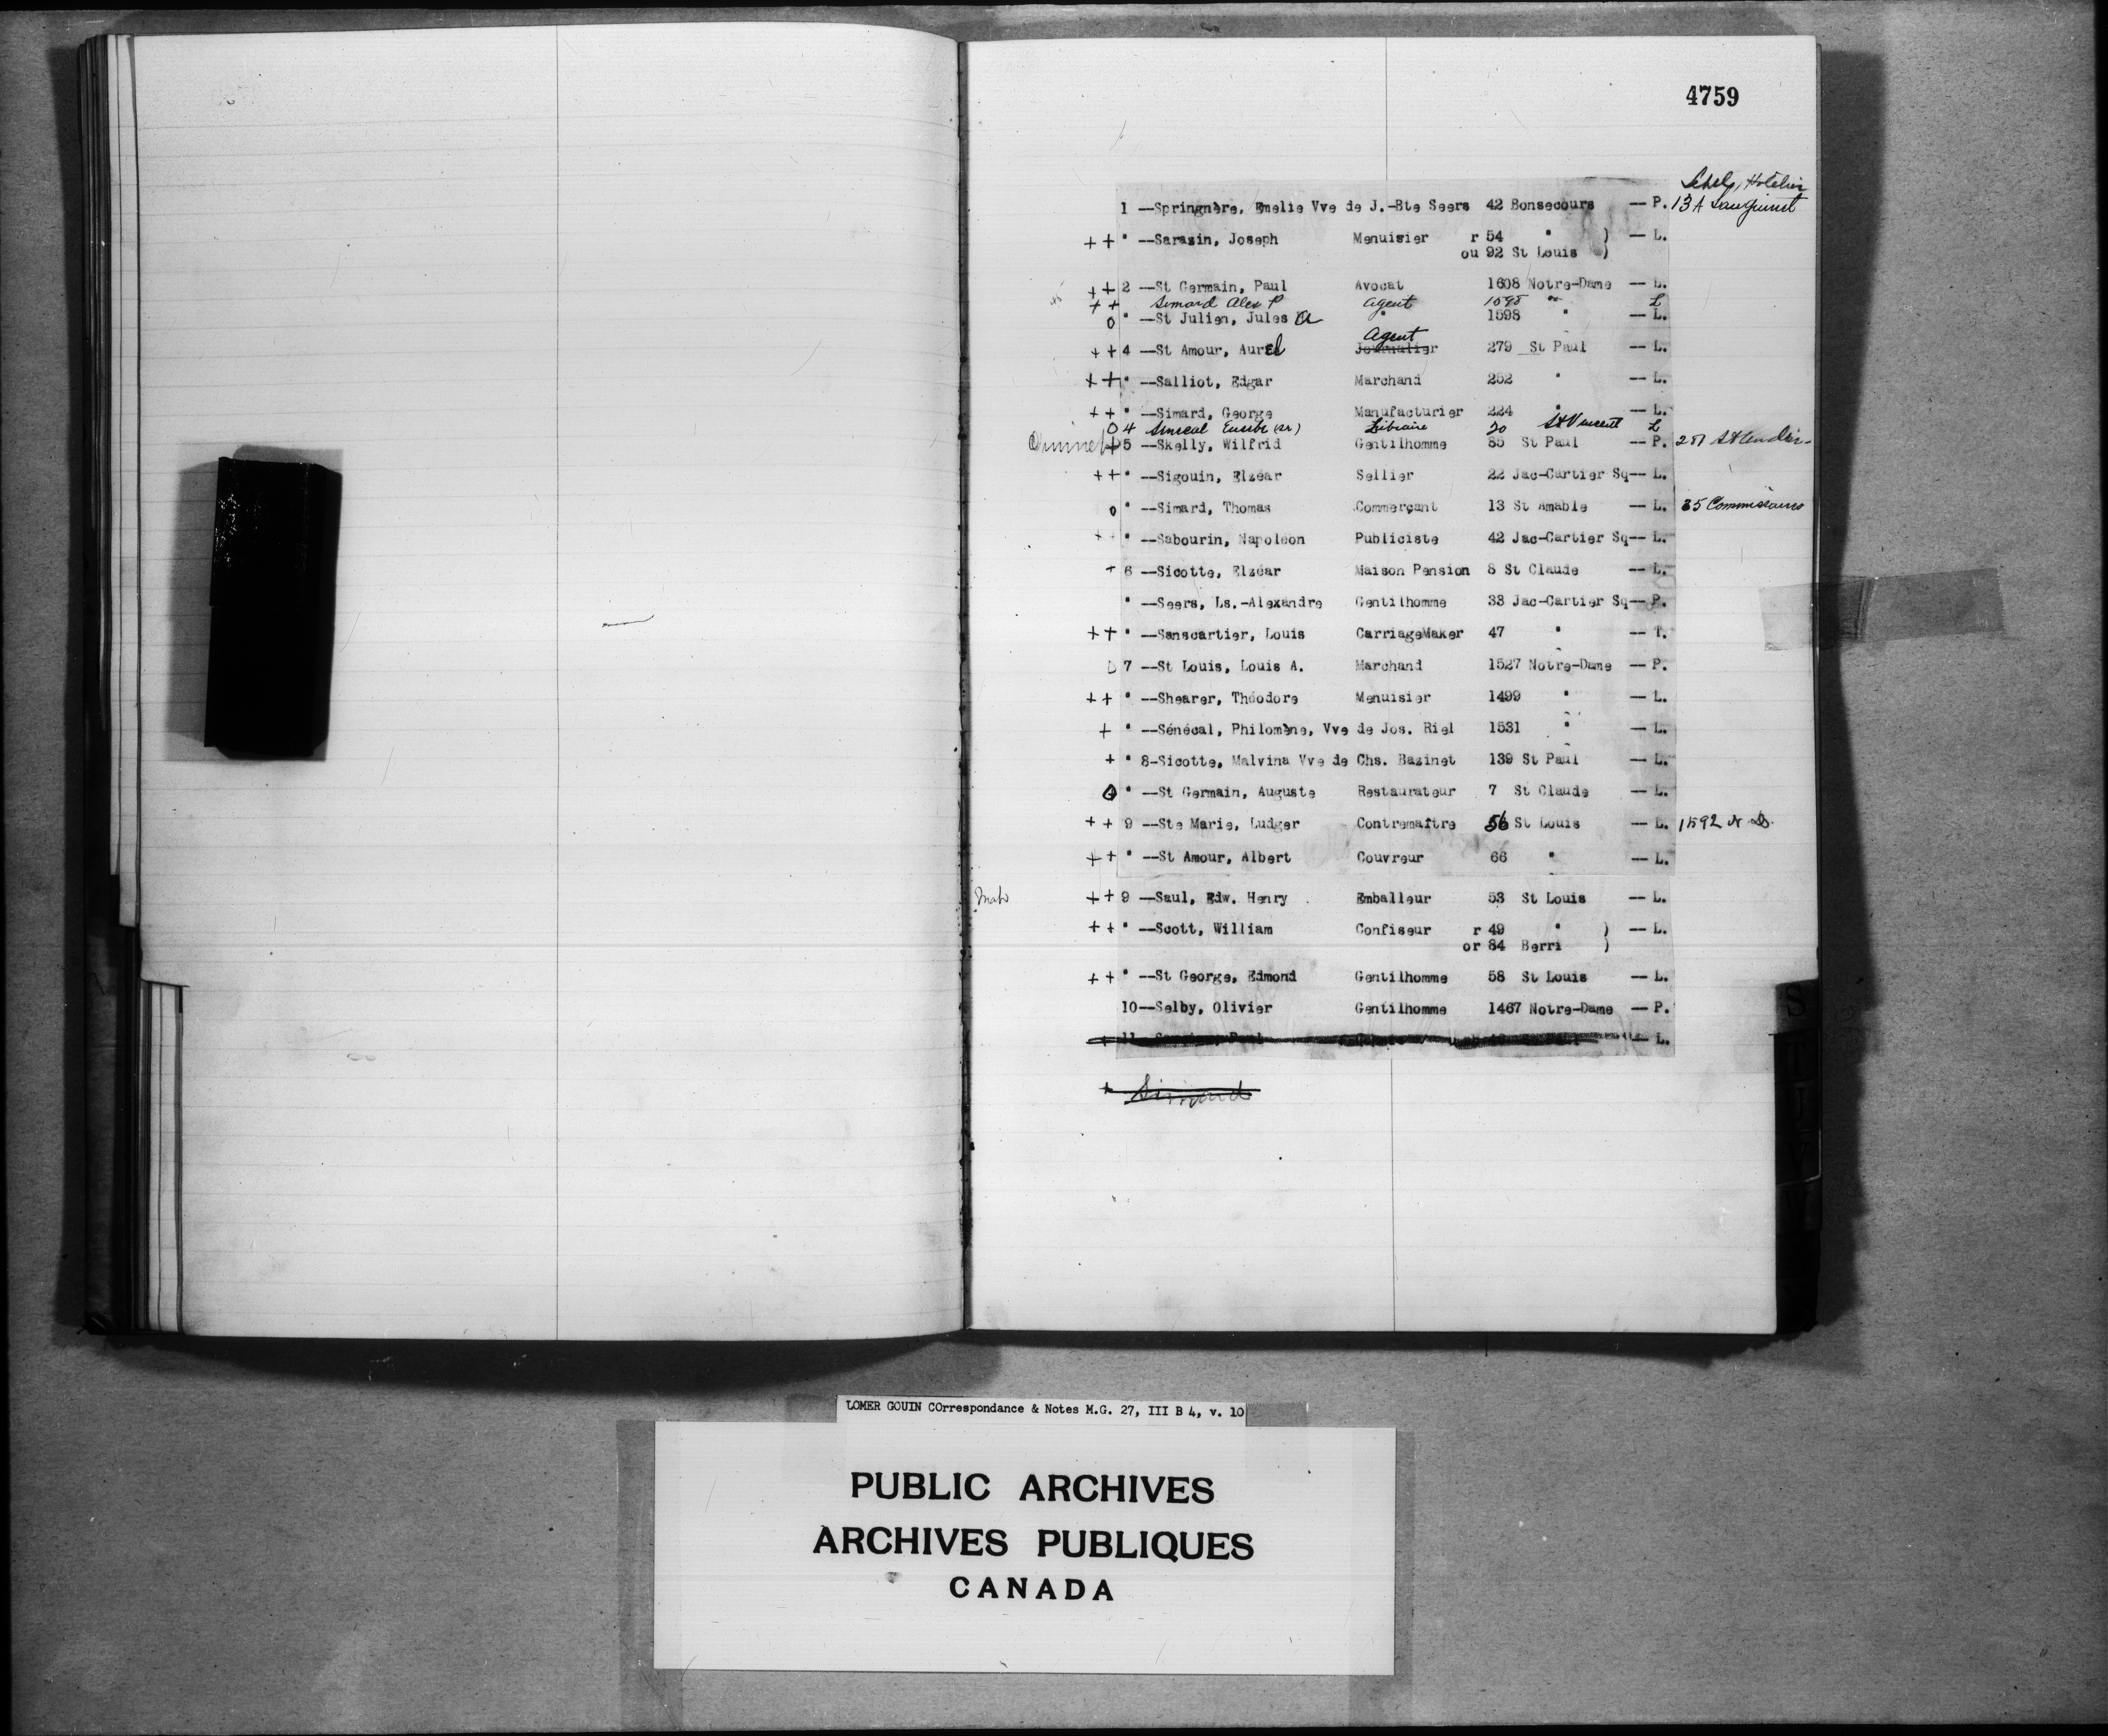 4759
Hotelier
1 --Springnère, Emelie Vve de J.-Bte Seers 42 Bonsecours -- P. 13A Sanguinet
++ " --Sarazin, Joseph Menuisier r 54 " ) -- L.
ou 92 St Louis )
++ 2 --St Germain, Paul Avocat 1608 Notre-Dame -- L.
++ Simard Alex P Agent 1595 " L
O " --St Julien, Jules A " 1598 " -- L.
Agent
++ 4 --St Amour, Aurel Journalier 279 St Paul -- L.
++ " --Salliot, Edgar Marchand 252 " -- L.
++ " --Simard, George Manufacturier 224 " -- L.
O 4 Senecal Eusebe (sr) Libraire 20 St Vincent L
5 --Skelly, Wilfrid Gentilhomme 85 St Paul -- P.
++ " --Sigouin, Elzéar Sellier 22 Jac-Cartier Sq-- L.
o " --Simard, Thomas Commerçant 13 St Amable -- L. 35 Commissaires
++ " --Sabourin, Napoléon Publiciste 42 Jac-Cartier Sq-- L.
+ 6 --Sicotte, Elzéar Maison Pension 8 St Claude -- L.
" --Seers, Ls.-Alexandre Gentilhomme 33 Jac-Cartier Sq-- P.
++ " --Sanscartier, Louis CarriageMaker 47 " -- T.
O 7 --St Louis, Louis A. Marchand 1527 Notre-Dame -- P.
++ " --Shearer, Théodore Menuisier 1499 " -- L.
+ " --Sénécal, Philomène, Vve de Jos. Riel 1531 " -- L.
+ " 8-Sicotte, Malvina Vve de Chs. Bazinet 139 St Paul -- L.
" --St Germain, Auguste Restaurateur 7 St Claude -- L.
++ 9 --Ste Marie, Ludger Contremaître 56 St Louis -- L. 1592 N D.
++ " --St Amour, Albert Couvreur 66 " -- L.
++ 9 --Saul, Edw. Henry Emballeur 53 St Louis -- L.
++ " --Scott, William Confiseur r 49 " ) -- L.
or 84 Berri )
++ " --St George, Edmond Gentilhomme 58 St Louis -- L.
10--Selby, Olivier Gentilhomme 1467 Notre-Dame -- P.
+ 11 -- L.
+ Simard
S
T
LOMER GOUIN COrrespondance & Notes M.G. 27, III B 4, v. 10
PUBLIC ARCHIVES
ARCHIVES PUBLIQUES
CANADA